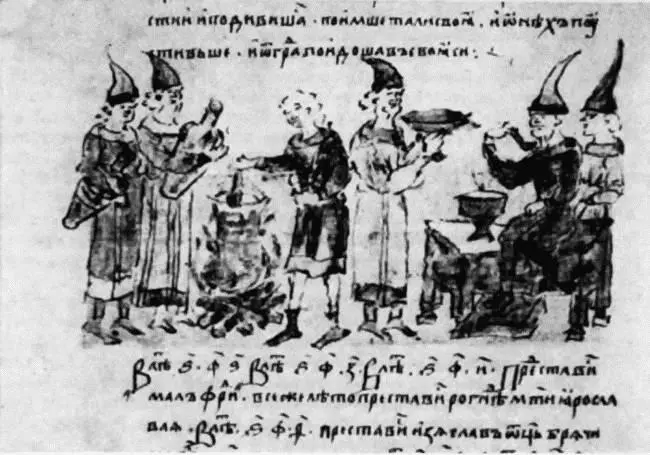 стии и подивиша · поимше тали своꙗ · и ѡнѣхъ пꙋ
стивьше · и ѿ гра поидоша въ своꙗ си :
В лѣ ѕ · ф · ѕ В лѣ ѕ · ф · з · В лѣ · ѕ · ф · и · Престави
малъфри · в се же лѣто престави рогнѣ мти ꙗросла
влꙗ · В лѣ · ѕ · ф · ѳ · престави изѧславъ ѿць брѧчи